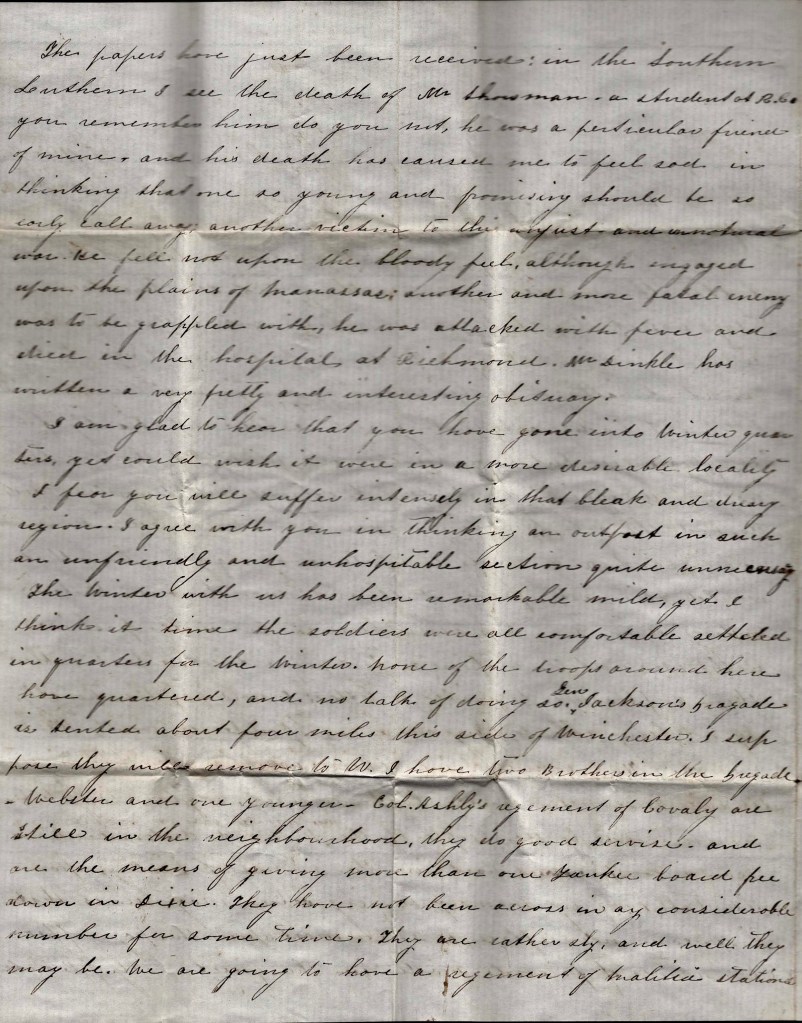 The papers have just been received: in the Southern
Lutheran I see the death of Mr Showman - a student at R. Co
you remember him do you not, he was a perticular friend
of mine, and his death has caused me to feel sad in
thinking that one so young and promising should be so
early call away, another victim to this unjust and unnatural
war. He fell not upon the bloody feel, although engaged
upon the plains of Manassas; another and more fatal enemy
was to be grappled with, he was attacked with fever and
died in the hospital at Richmond. Mr Dinkle has
written a very pretty and interesting obituary.
I am glad to hear that you have gone into Winter quar
ters, yet could wish it were in a more desirable locality
I fear you will suffer intensely in that bleak and dreary
region. I agree with you in thinking an outpost in such
an unfriendly and unhospitable section quite
The Winter with us has been remarkable mild, yet I
think it time the soldiers were all comfortable setteled
in quarters for the Winter. None of the troops around here
have quartered, and no talk of doing so. Gen Jackson's bragade
is tented about four miles this side of Winchester. I sup
pose they will remove to W. I have two Brothers in the brigade
- Webster and one younger - Col. Ashly's regement of Covaly are
still in the neighbourhood, they do good servise - and
are the means of giving more than one Yankee board free
down in Dixie. They have not been across in any considerable
number for some time. They are rather sly, and well they
may be. We are going to have a regement of malitia stationd